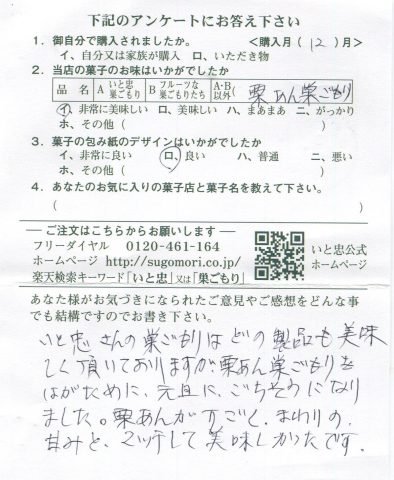 下記のアンケートにお答え下さい
1. 御自分で購入されましたか。 <購入月( 12 )月>
イ、自分又は家族が購入 ロ、いただき物
2. 当店の菓子のお味はいかがでしたか
品 名 A いと忠巣ごもり B フルーツな巣ごもりたち A・B以外( 栗あん巣ごもり )
イ、非常に美味しい ロ、美味しい ハ、まあまあ ニ、がっかり
ホ、その他( )
3. 菓子の包み紙のデザインはいかがでしたか
イ、非常に良い ロ、良い ハ、普通 ニ、悪い
ホ、その他( )
4. あなたのお気に入りの菓子店と菓子名を教えて下さい。
( )
ご注文はこちらからお願いします
フリーダイヤル 0120-461-164
ホームページ http://sugomori.co.jp/
楽天検索キーワード「いと忠」又は「巣ごもり」
いと忠公式
ホームページ
あなた様がお気づきになられたご意見やご感想をどんな事
でも結構ですのでお書き下さい。
いと忠さんの巣ごもりはどの製品も美味
しく頂いておりますが栗あん巣ごもりを
はがために、元旦に、ごちそうになり
ました。栗あんがすごく、まわりの、
甘みと、マッチして美味しかったです。